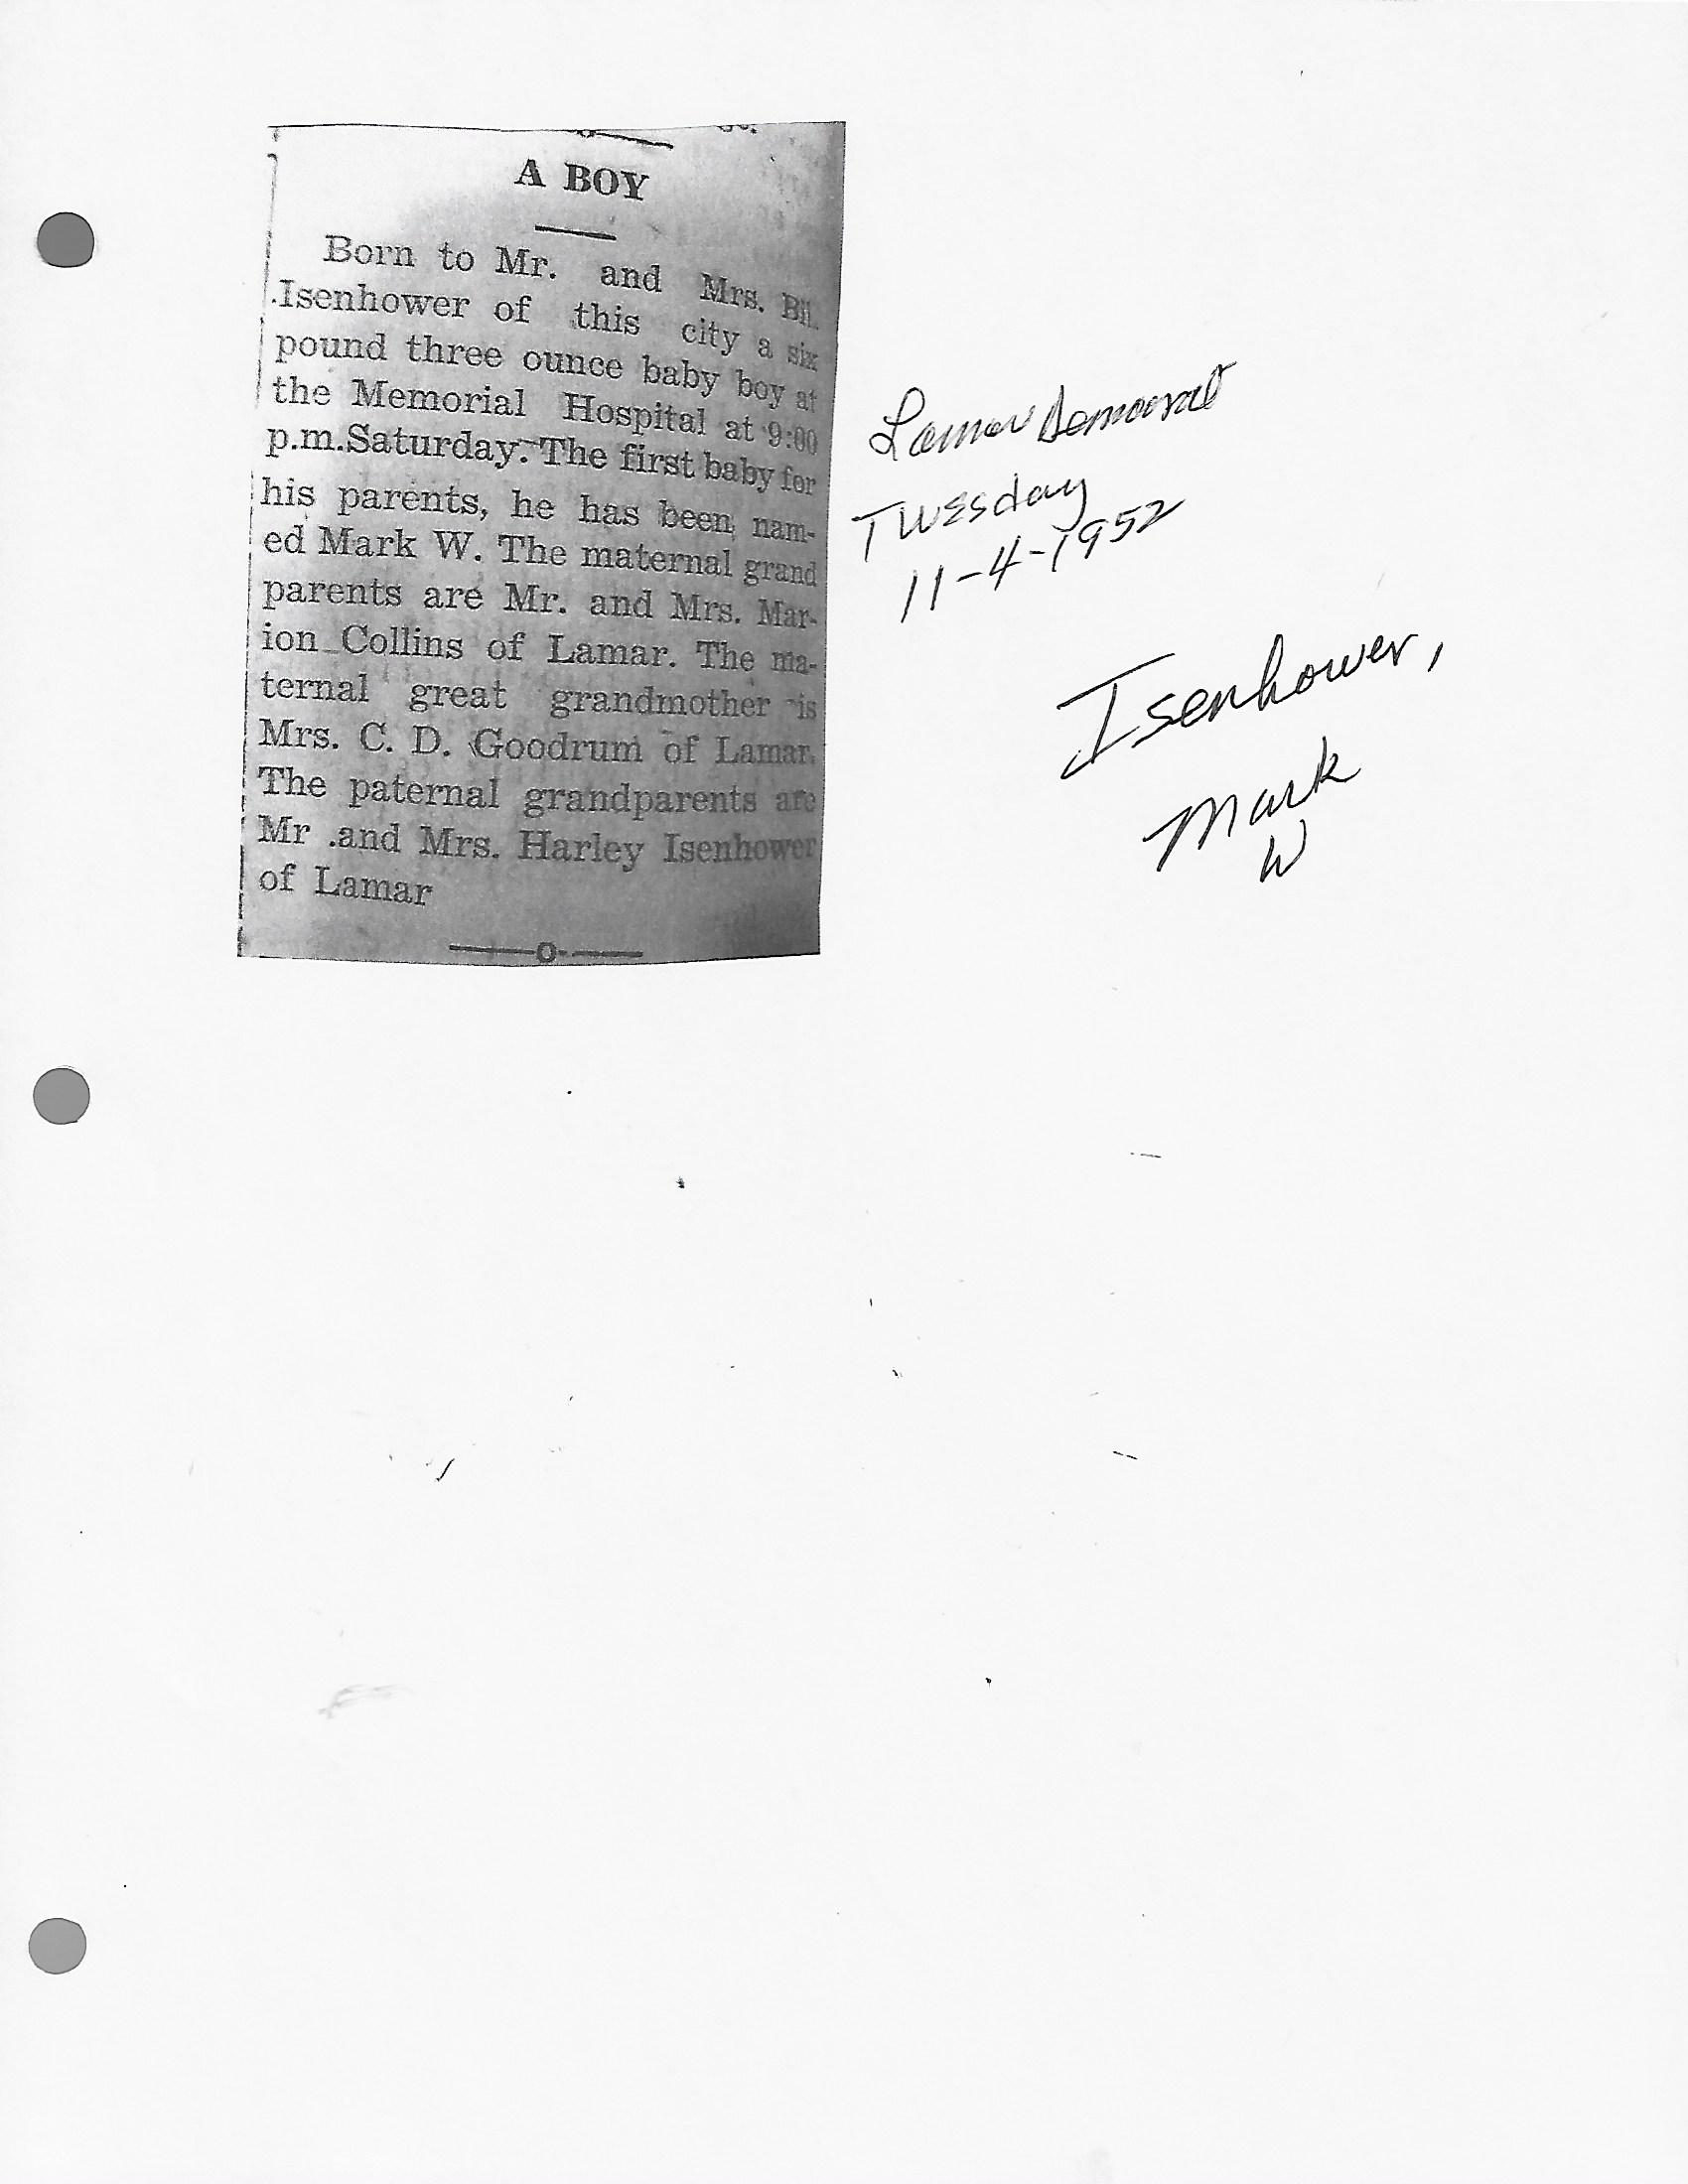 A BOY
Born to Mr. and Mrs. Bil
.Isenhower of this city a six
pound three ounce baby boy at
the Memorial Hospital at 9:00
p.m.Saturday. The first baby for
his parents, he has been nam-
ed Mark W. The maternal grand
parents are Mr. and Mrs. Mar-
ion Collins of Lamar. The ma-
ternal great grandmother is
Mrs. C. D. Goodrum of Lamar.
The paternal grandparents are
Mr .and Mrs. Harley Isenhower
of Lamar
Lamar Democrat
Tuesday
11-4-1952
Isenhower,
Mark
W